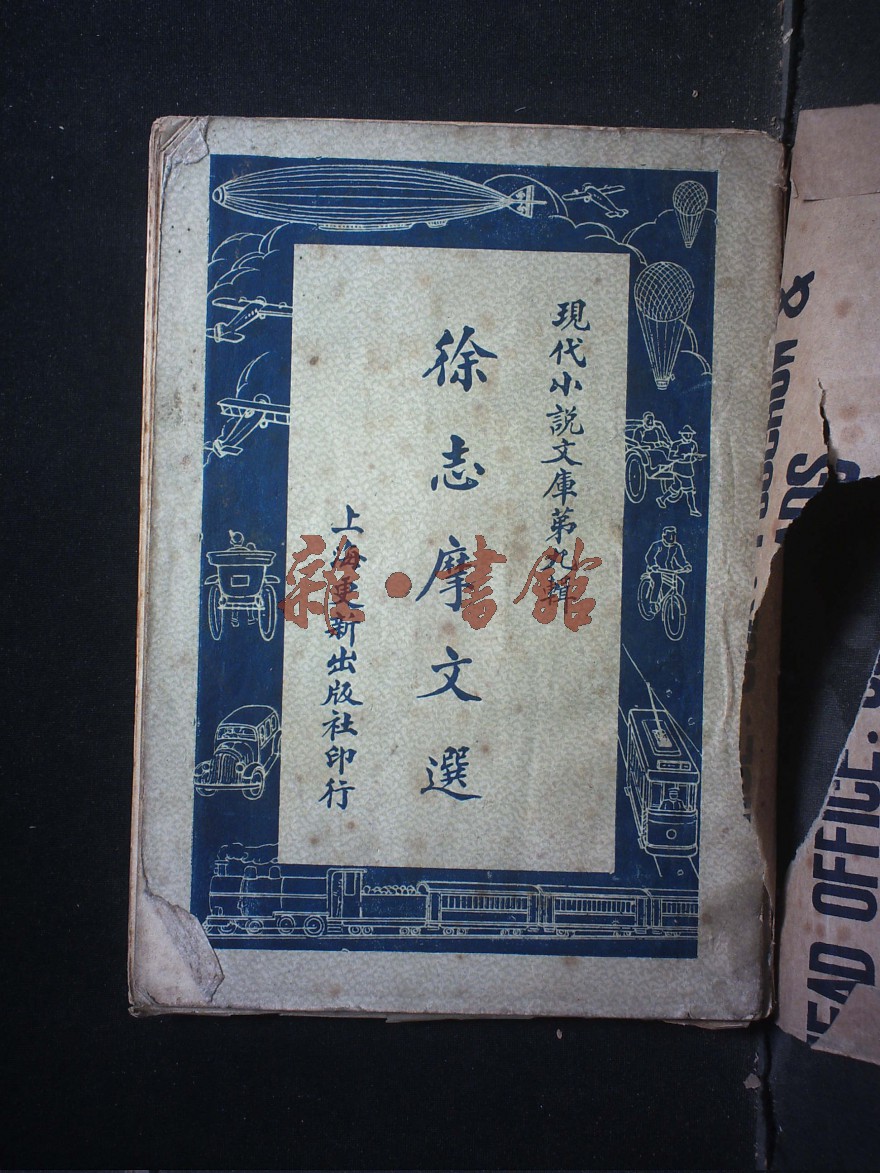 現代小説文庫第九輯
徐志摩文選
上海更新出版社印行
雜·書館
HEAD OFFICE.